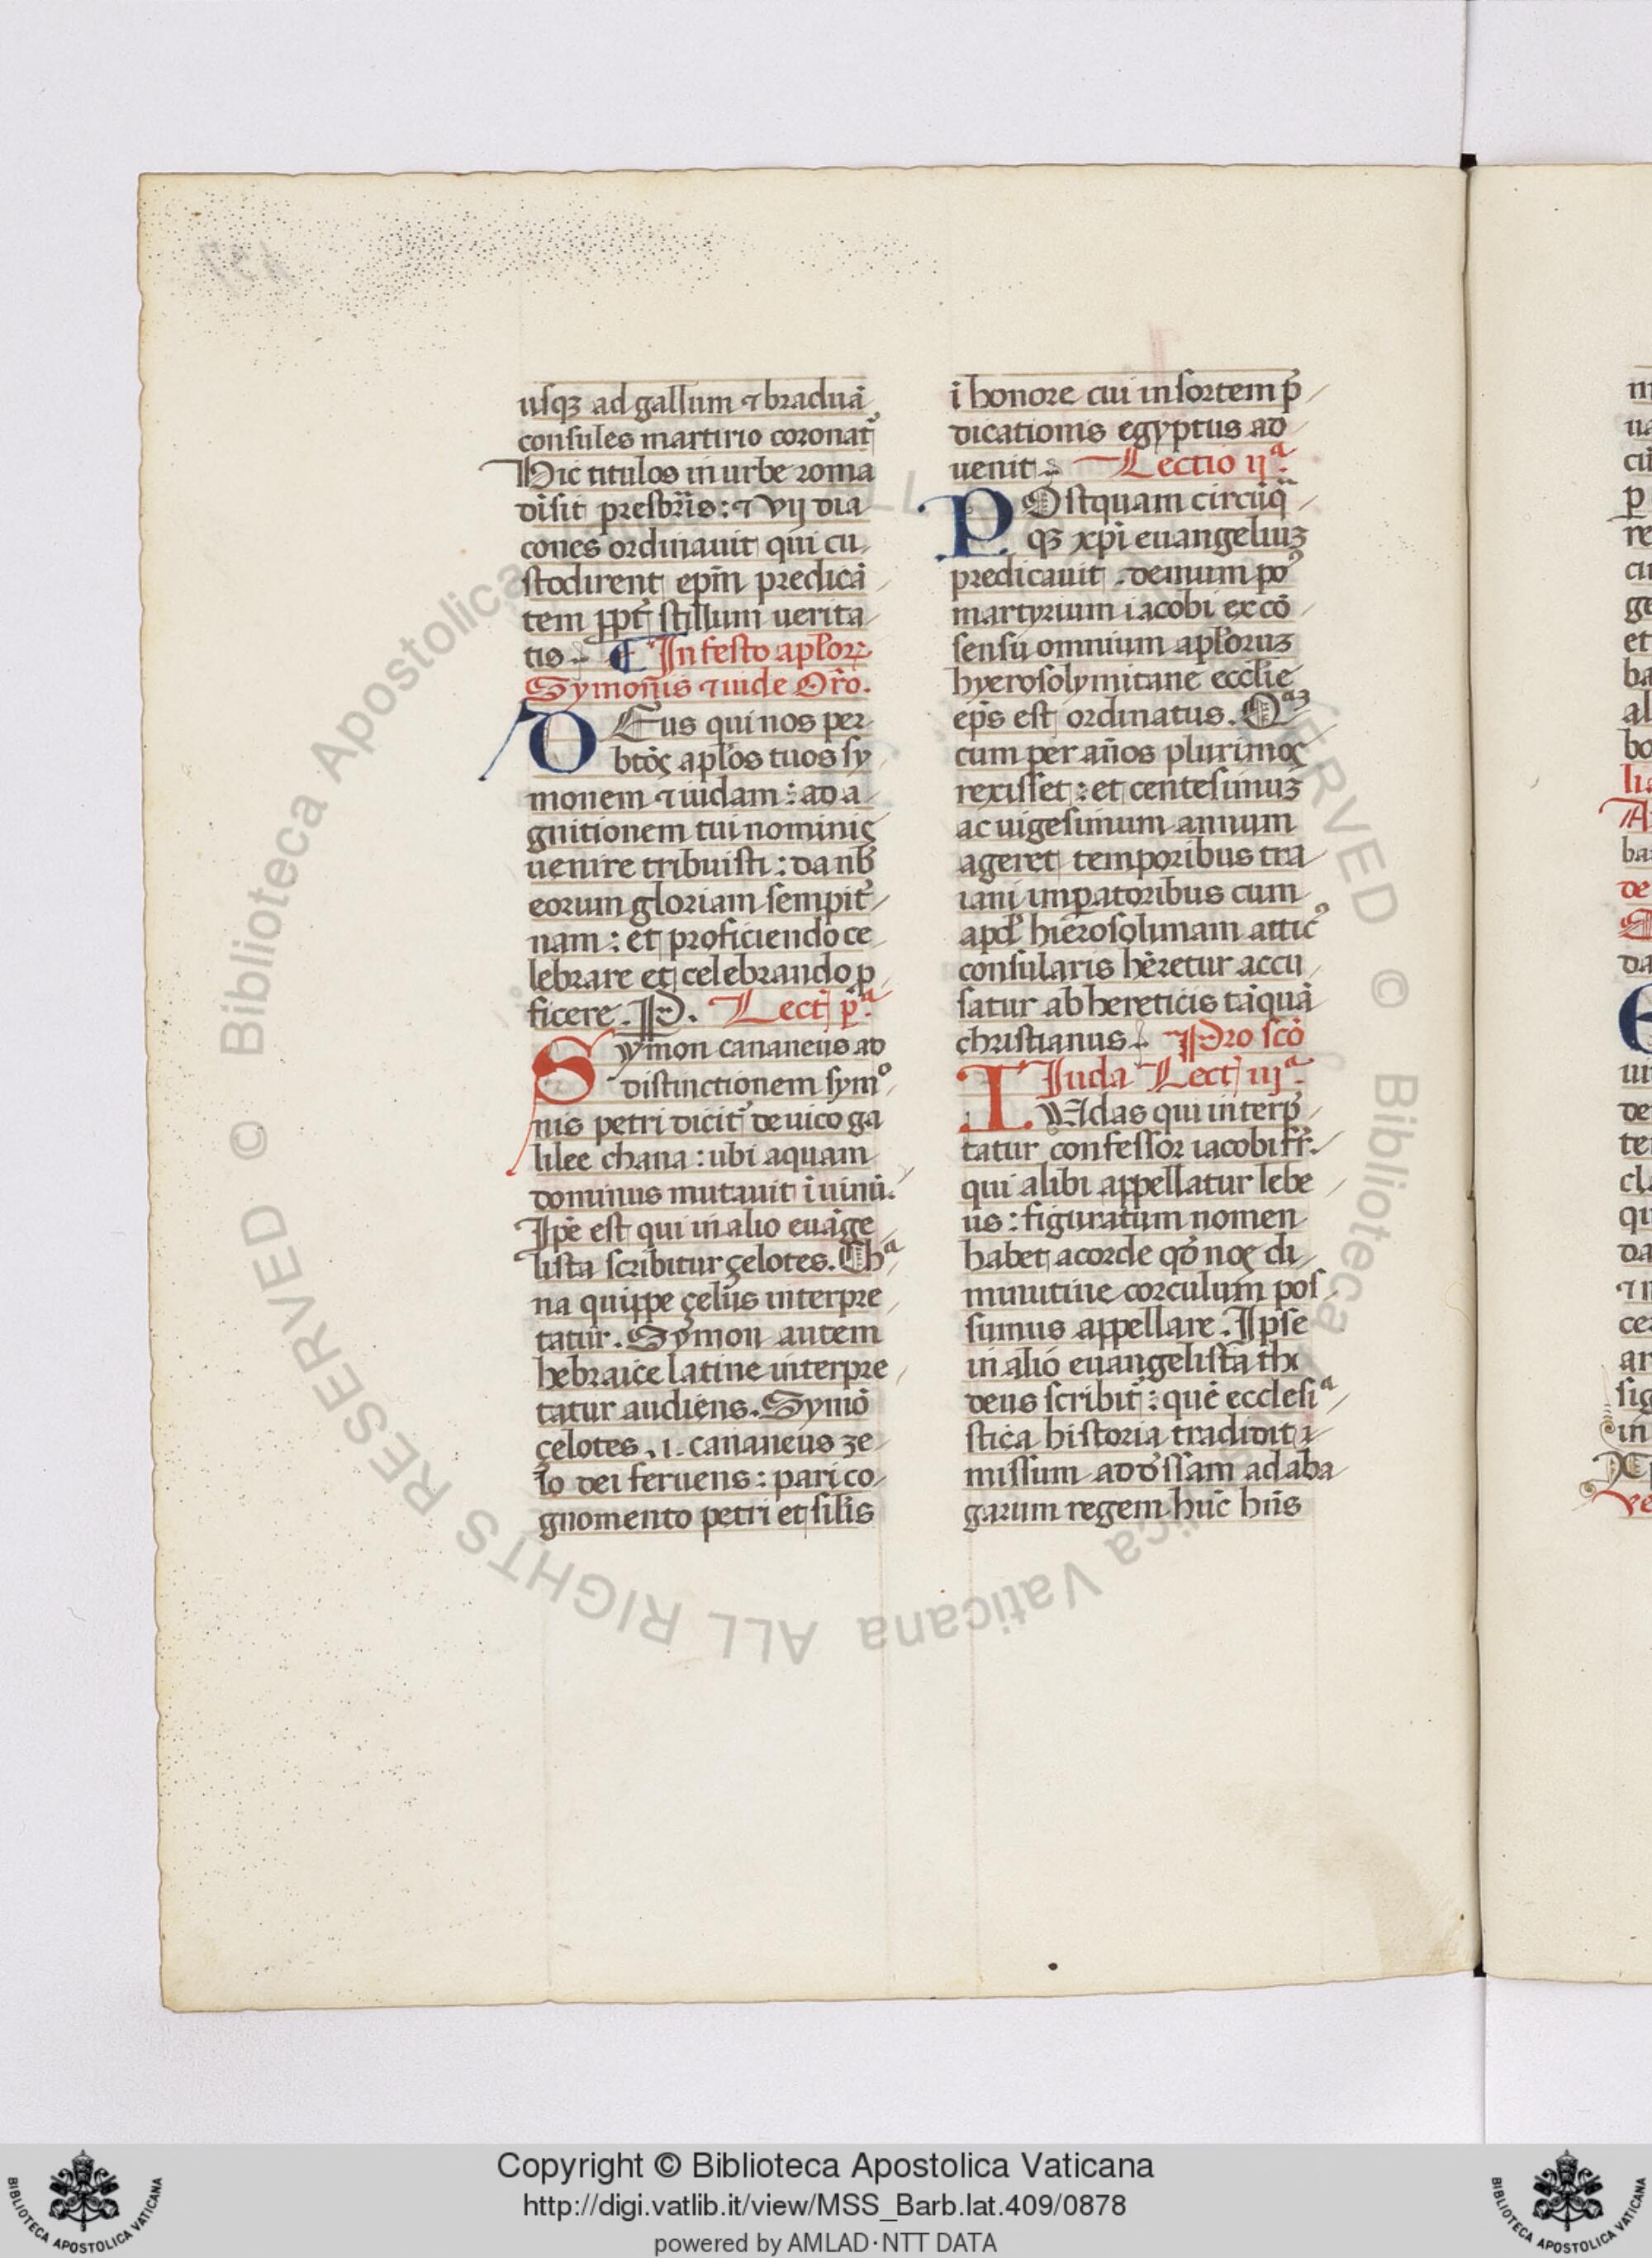 usqꝫ ad gallum ⁊ braduā
consules martirio coronat᷒
Hic titulos in urbe roma
diſit presbr̄is: ⁊ vij dia
cones ordinauit qui cu
stodirent ep̄m predicā
tem ꝓpt̄ stillum uerita
tis. ¶ In festo apl'oꝝ
Symonis ⁊ iude Or̄o.
DEus qui nos per
btōs apl'os tuos sy
monem ⁊ iudam: ad a
gnitionem tui nominis
uenire tribuisti: da nb̄
eorum gloriam sempit̄
nam: et proficiendo ce
lebrare et celebrando ꝓ
ficere. P. Lect p.ª
Symon cananeus ad
distinctionem symº
nis petri dicit᷒ de uico ga
lilee chana: ubi aquam
dominus mutauit ī uinū.
Ip̄e est qui in alio euāge
lista scribitur çelotes. Chª
na quippe çelus interpre
tatur. Symon autem
hebraice latine interpre
tatur audiens. Symō
çelotes .i. cananeus ze
lo dei feruens: pari co
gnomento petri et silis
ī honore cui in sortem p̄
dicationis egyptus ad
uenit. Lectio ijª.
POstquam circūq̄
qꝫ xp̄i euangeliuꝫ
predicauit. demum po᷒
martyrium iacobi ex cō
sensu omnium apl'oruꝫ
hyerosolymitane ecclie
ep̄s est ordinatus. Qªꝫ
cum per an̄os plurimos
rexisset: et centesimuꝫ
ac uigesimum annum
ageret temporibus tra
iani imꝑatoribus cum
apd' hierosolimam attic᷒
consularis hēretur accu
satur ab hereticis tāquā
christianus. Pro scō
Iuda Lect iijª.
IVdas qui interp̄
tatur confessor iacobi fr̄.
qui alibi appellatur lebe
us: figuratum nomen
habet a corde qd̄ nos di
minutiue corculum pos
sumus appellare. Ipse
in alio euangelista tha
deus scribit᷒: quē ecclesiª
stica historia tradidit
missum ad edissam ad aba
garum regem. hūc hn̄s